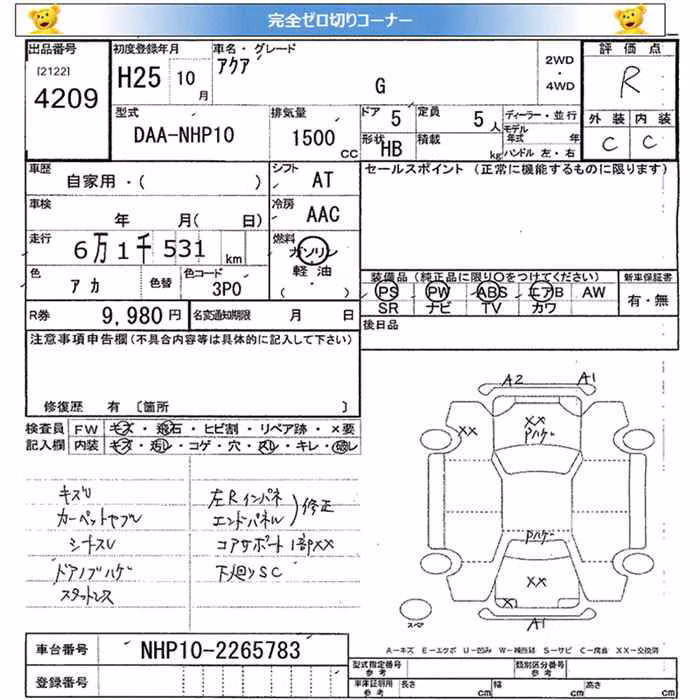 完全ゼロ切りコーナー
出品番号 [2122] 4209
初度登録年月 H25 10月
車名・グレード アクア G 2WD・4WD
評価点 R
外装 C 内装 C
型式 DAA-NHP10
排気量 1500 CC
ドア 5 定員 5人
形状 HB 積載 kg
ディーラー・並行
モデル年式 年
ハンドル 左・右
車歴 自家用・( )
シフト AT
セールスポイント (正常に機能するものに限ります)
車検 年 月( 日)
冷房 AAC
走行 6万1千531 km
燃料 ガソリン 軽油 ( ・ )
色 アカ 色替 色コード 3P0
装備品(純正品に限り○をつけてください)
PS PW ABS エアB AW
SR ナビ TV カワ
新車保証書 有・無
R券 9,980円 名変通知期限 月 日
後日品
注意事項申告欄(不具合内容等は具体的に記入して下さい)
修復歴 有 〔箇所 〕
検査員 FW キズ・飛石・ヒビ割・リペア跡・×要
記入欄 内装 キズ・汚レ・コゲ・穴・スレ・キレ・破レ
キズU
カーペットヤブレ
シートスレ
ドアノブハゲ
スタットレス
左Rインパネ
エンドパネル )修正
コアサポート1部XX
下廻りSC
A2 A1
XX
XX
Pハゲ
Pハゲ
XX
X
A1
スペア
A-キズ E-エクボ U-凹み W-補修跡 S-サビ C-腐食 XX-交換済
車台番号 NHP10-2265783
登録番号
型式指定番号 参考 類別区分番号 参考
車庫証明用 参考 長さ cm 幅 cm 高さ cm